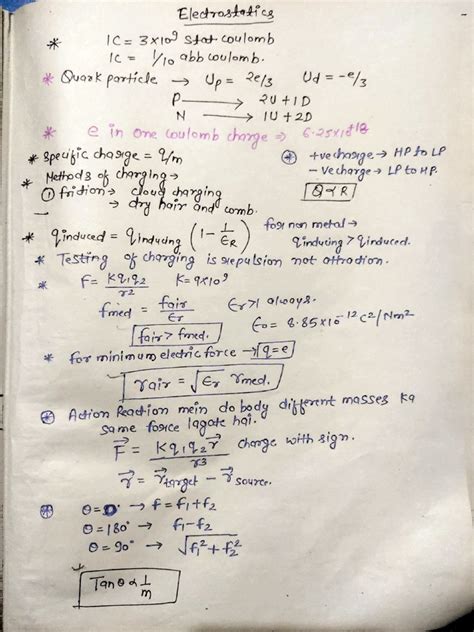 Electrostatics
* 1C = 3×10⁹ stat coulomb
1C = 1/10 abb coulomb.
* Quark particle → Up = 2e/3 Ud = -e/3
P → 2U+1D
N → 1U+2D
* e in one coulomb charge → 6.25×10⁺¹⁸
* Specific charge = q/m
* Methods of charging →
① friction → cloud charging
→ dry hair and comb.
⊛ +ve charge → HP to LP
- Ve charge → LP to HP.
Q∝R
* qinduced = qinducing (1 - 1/εR)
for non metal →
qinducing > qinduced.
* Testing of charging is repulsion not attraction.
* F = Kq1q2/r² K = 9×10⁹
fmed = fair/εr εr>1 always.
fair > fmed. εo = 8.85×10⁻¹² C²/Nm²
* for minimum electric force → q=e
rair = √εr rmed.
⊛ Action Reaction mein do body different masses ka
same force lagate hai.
F⃗ = Kq1q2r⃗/r³ charge with sign.
r⃗ = r⃗target - r⃗source.
⊛ θ=0° → f = f1+f2
θ=180° → f1-f2
θ=90° → √f1²+f2²
* Tanθ ∝ 1/m